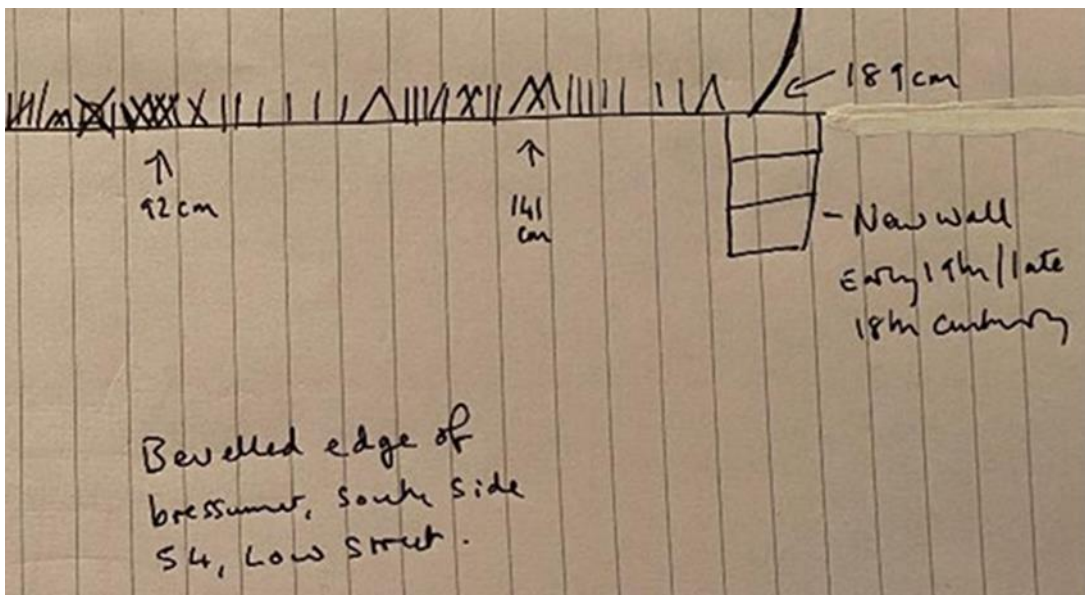 189cm
92 cm
141
cm
- New wall
Early 19th/late
18th century
Bevelled edge of
bressumer, south side
54, Low Street.